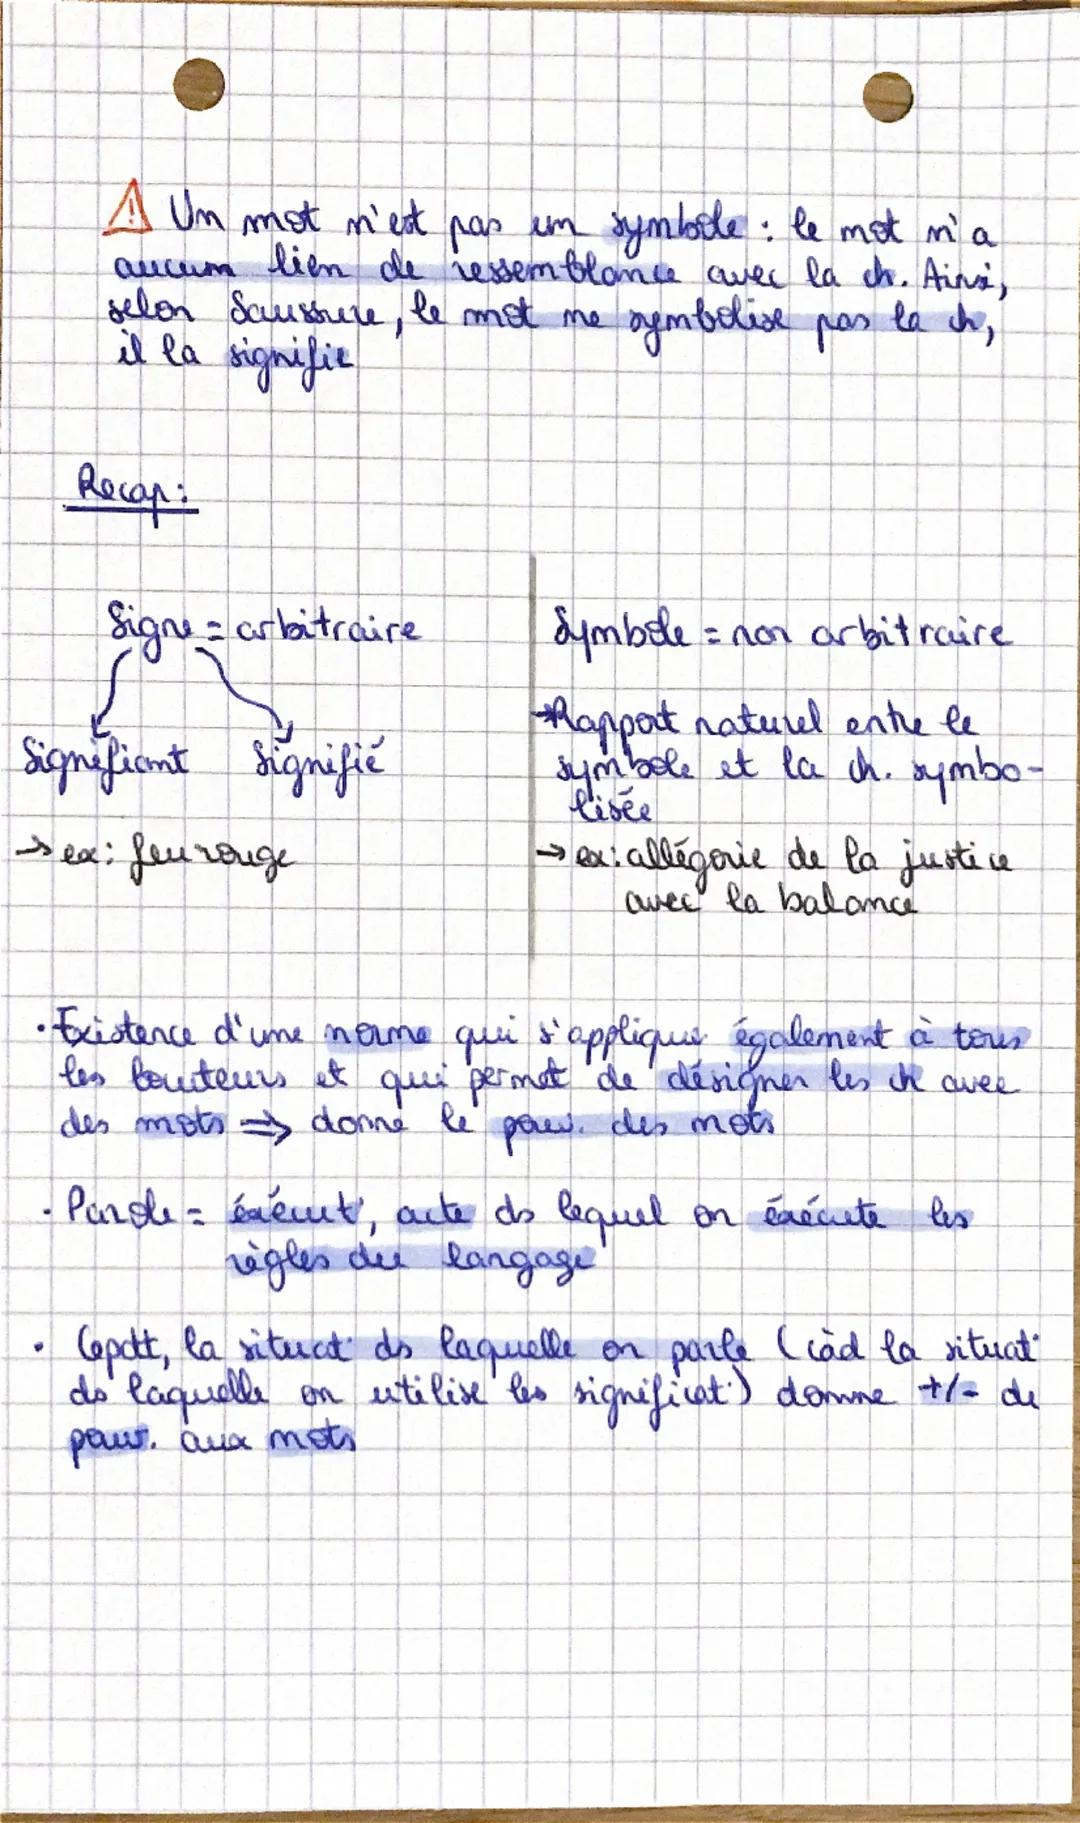 ⚠ Un mot n'est pas un symbole : le mot n'a
aucun lien de ressemblance avec la ch. Ainsi,
selon Saussure, le mot ne symbolise pas la ch,
il la signifie
Recap:
Signe = arbitraire
Significant Signifié
→ ex: feu rouge
Symbole = non arbitraire
→Rapport naturel entre le
symbole et la ch. symbo-
lisée
→ ex: allégorie de la justice
avec la balance
• Existence d'une norme qui s'applique également à tous
les locuteurs et qui permet de désigner les ch avec
des mots ⇒ donne le pouv. des mots
• Parole = éxécut°, acte ds lequel on éxécute les
règles du langage
• Cepdt, la situat° ds laquelle on parle (càd la situat°
ds laquelle on utilise les significat°) donne +/- de
pouv. aux mots